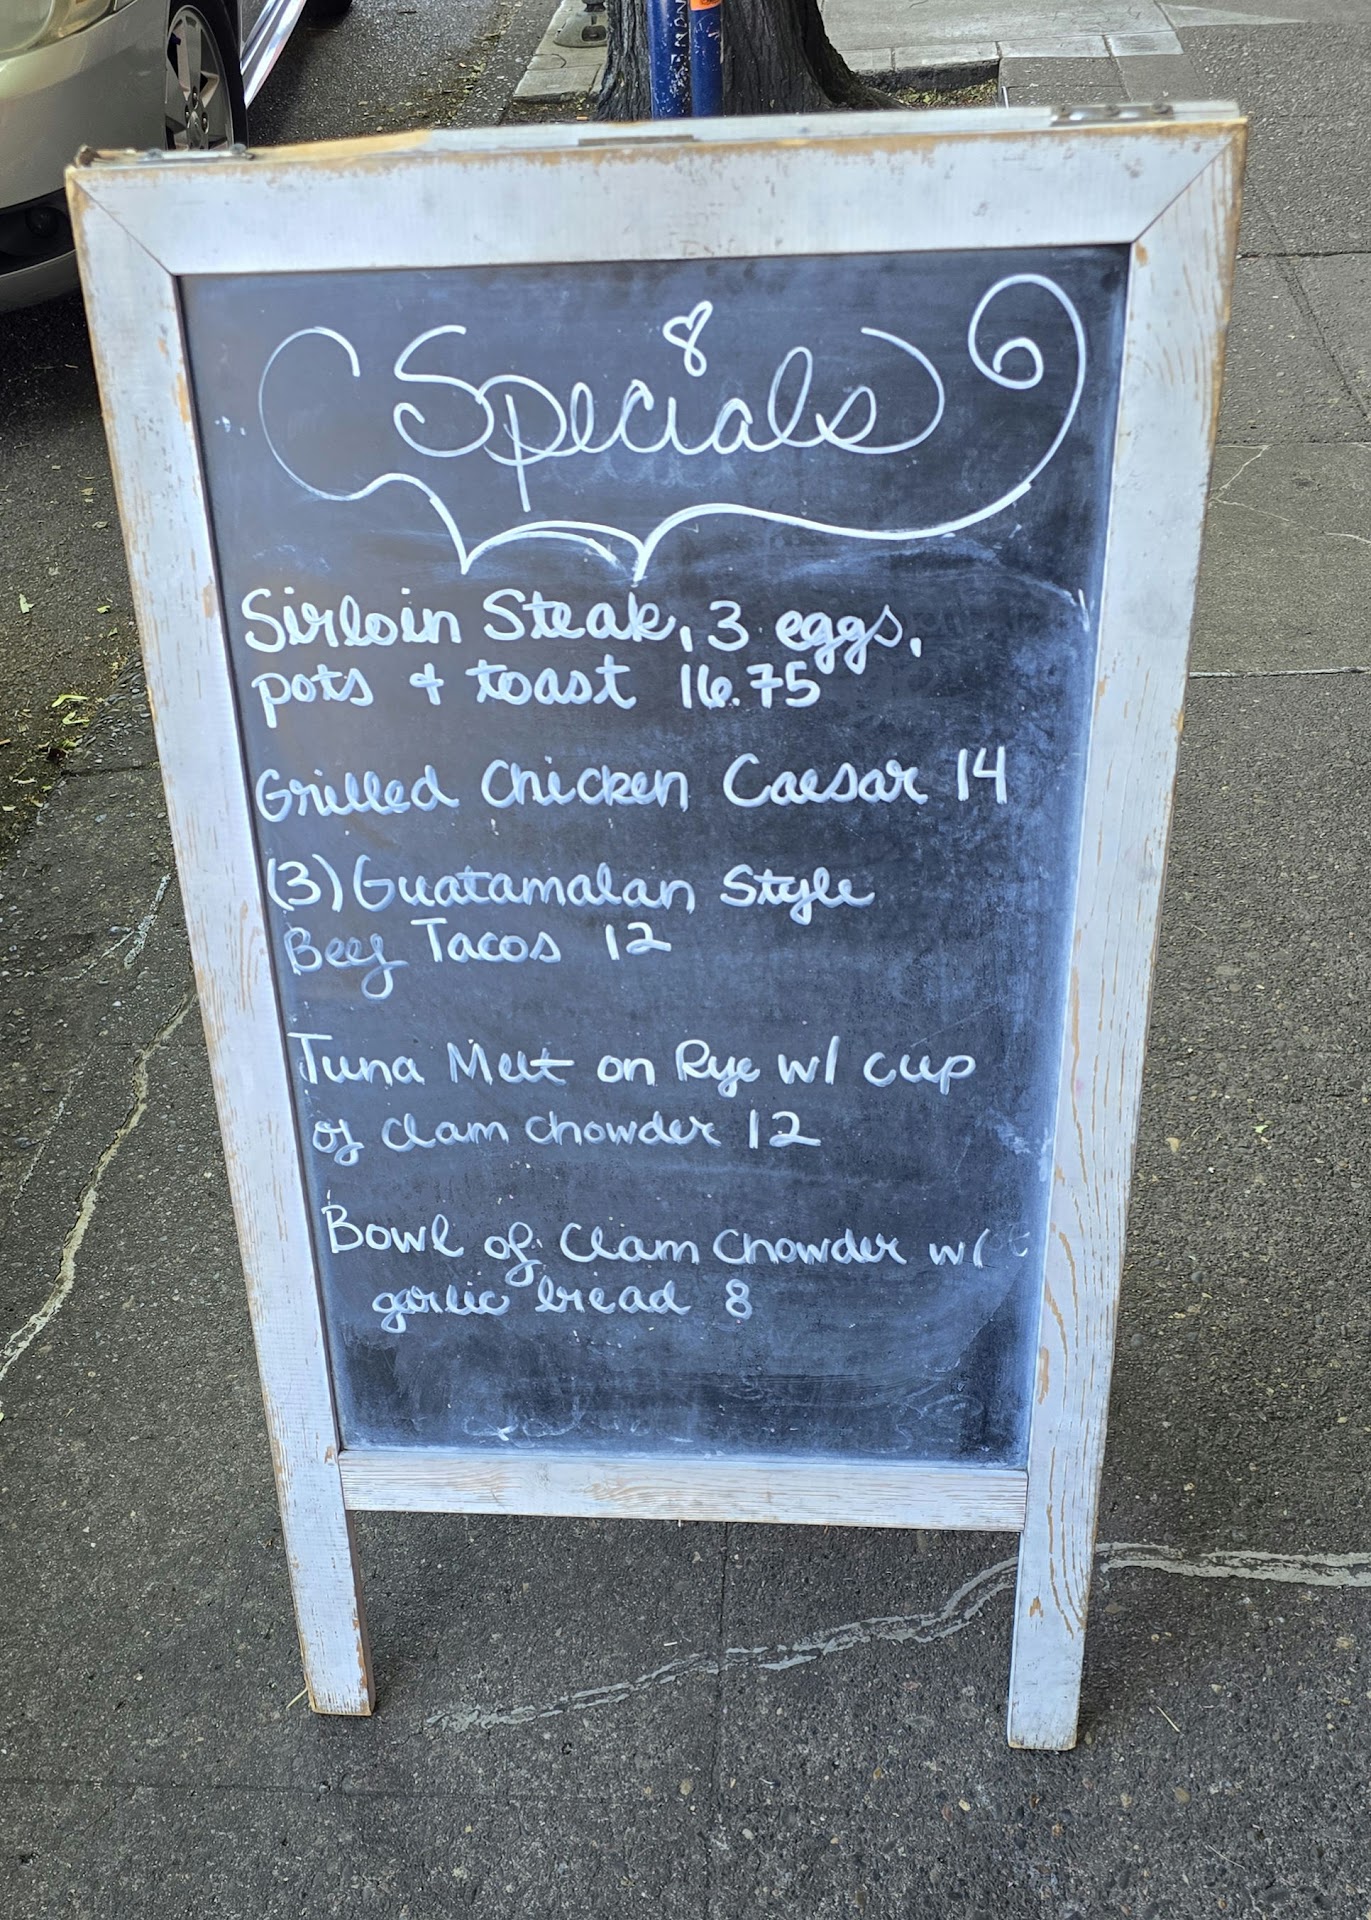 Specials
Sirloin Steak, 3 eggs,
pots & toast 16.75
Grilled Chicken Caesar 14
(3) Guatamalan Style
Beef Tacos 12
Tuna Melt on Rye w/ cup
of clam chowder 12
Bowl of Clam Chowder w/
garlic bread 8